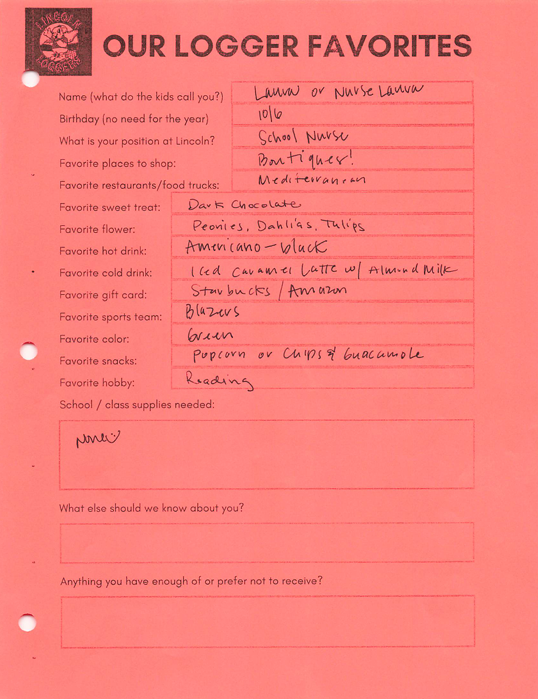 LINCOLN
LOGGERS
OUR LOGGER FAVORITES
Name (what do the kids call you?) Laura or Nurse Laura
Birthday (no need for the year) 10/6
What is your position at Lincoln? School Nurse
Favorite places to shop: Boutiques!
Favorite restaurants/food trucks: Mediterranean
Favorite sweet treat: Dark Chocolate
Favorite flower: Peonies, Dahlias, Tulips
Favorite hot drink: Americano - black
Favorite cold drink: Iced Caramel Latte w/ Almond Milk
Favorite gift card: Starbucks / Amazon
Favorite sports team: Blazers
Favorite color: Green
Favorite snacks: Popcorn or Chips & Guacamole
Favorite hobby: Reading
School / class supplies needed:
None :)
What else should we know about you?
Anything you have enough of or prefer not to receive?